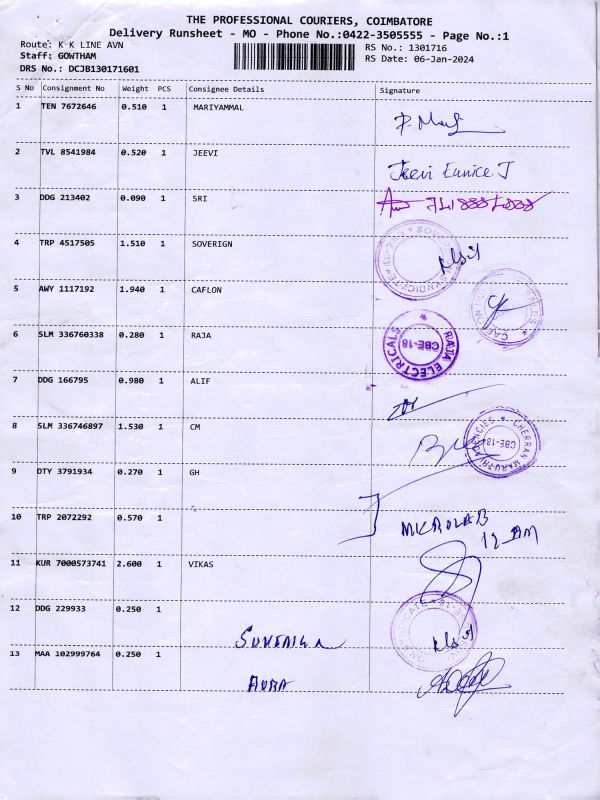 THE PROFESSIONAL COURIERS, COIMBATORE
Delivery Runsheet - MO - Phone No.:0422-3505555 - Page No.:1
Route: K K LINE AVN
Staff: GOWTHAM
DRS No.: DCJB130171601
RS No.: 1301716
RS Date: 06-Jan-2024
S No Consignment No Weight PCS Consignee Details Signature
1 TEN 7672646 0.510 1 MARIYAMMAL
2 TVL 8541984 0.520 1 JEEVI Jeevi Eunice J
3 DDG 213402 0.090 1 SRI
4 TRP 4517505 1.510 1 SOVERIGN
SYNDICATE
5 AWY 1117192 1.940 1 CAFLON
6 SLM 336760338 0.280 1 RAJA
RAJA ELECTRICALS CBE-18
7 DDG 166795 0.980 1 ALIF
8 SLM 336746897 1.530 1 CM
CHERRAN MARUTHI AGENCIES CBE-18
9 OTY 3791934 0.270 1 GH
10 TRP 2072292 0.570 1
12 AM
11 KUR 7000573741 2.600 1 VIKAS
12 DDG 229933 0.250 1
13 MAA 102999764 0.250 1
AURA